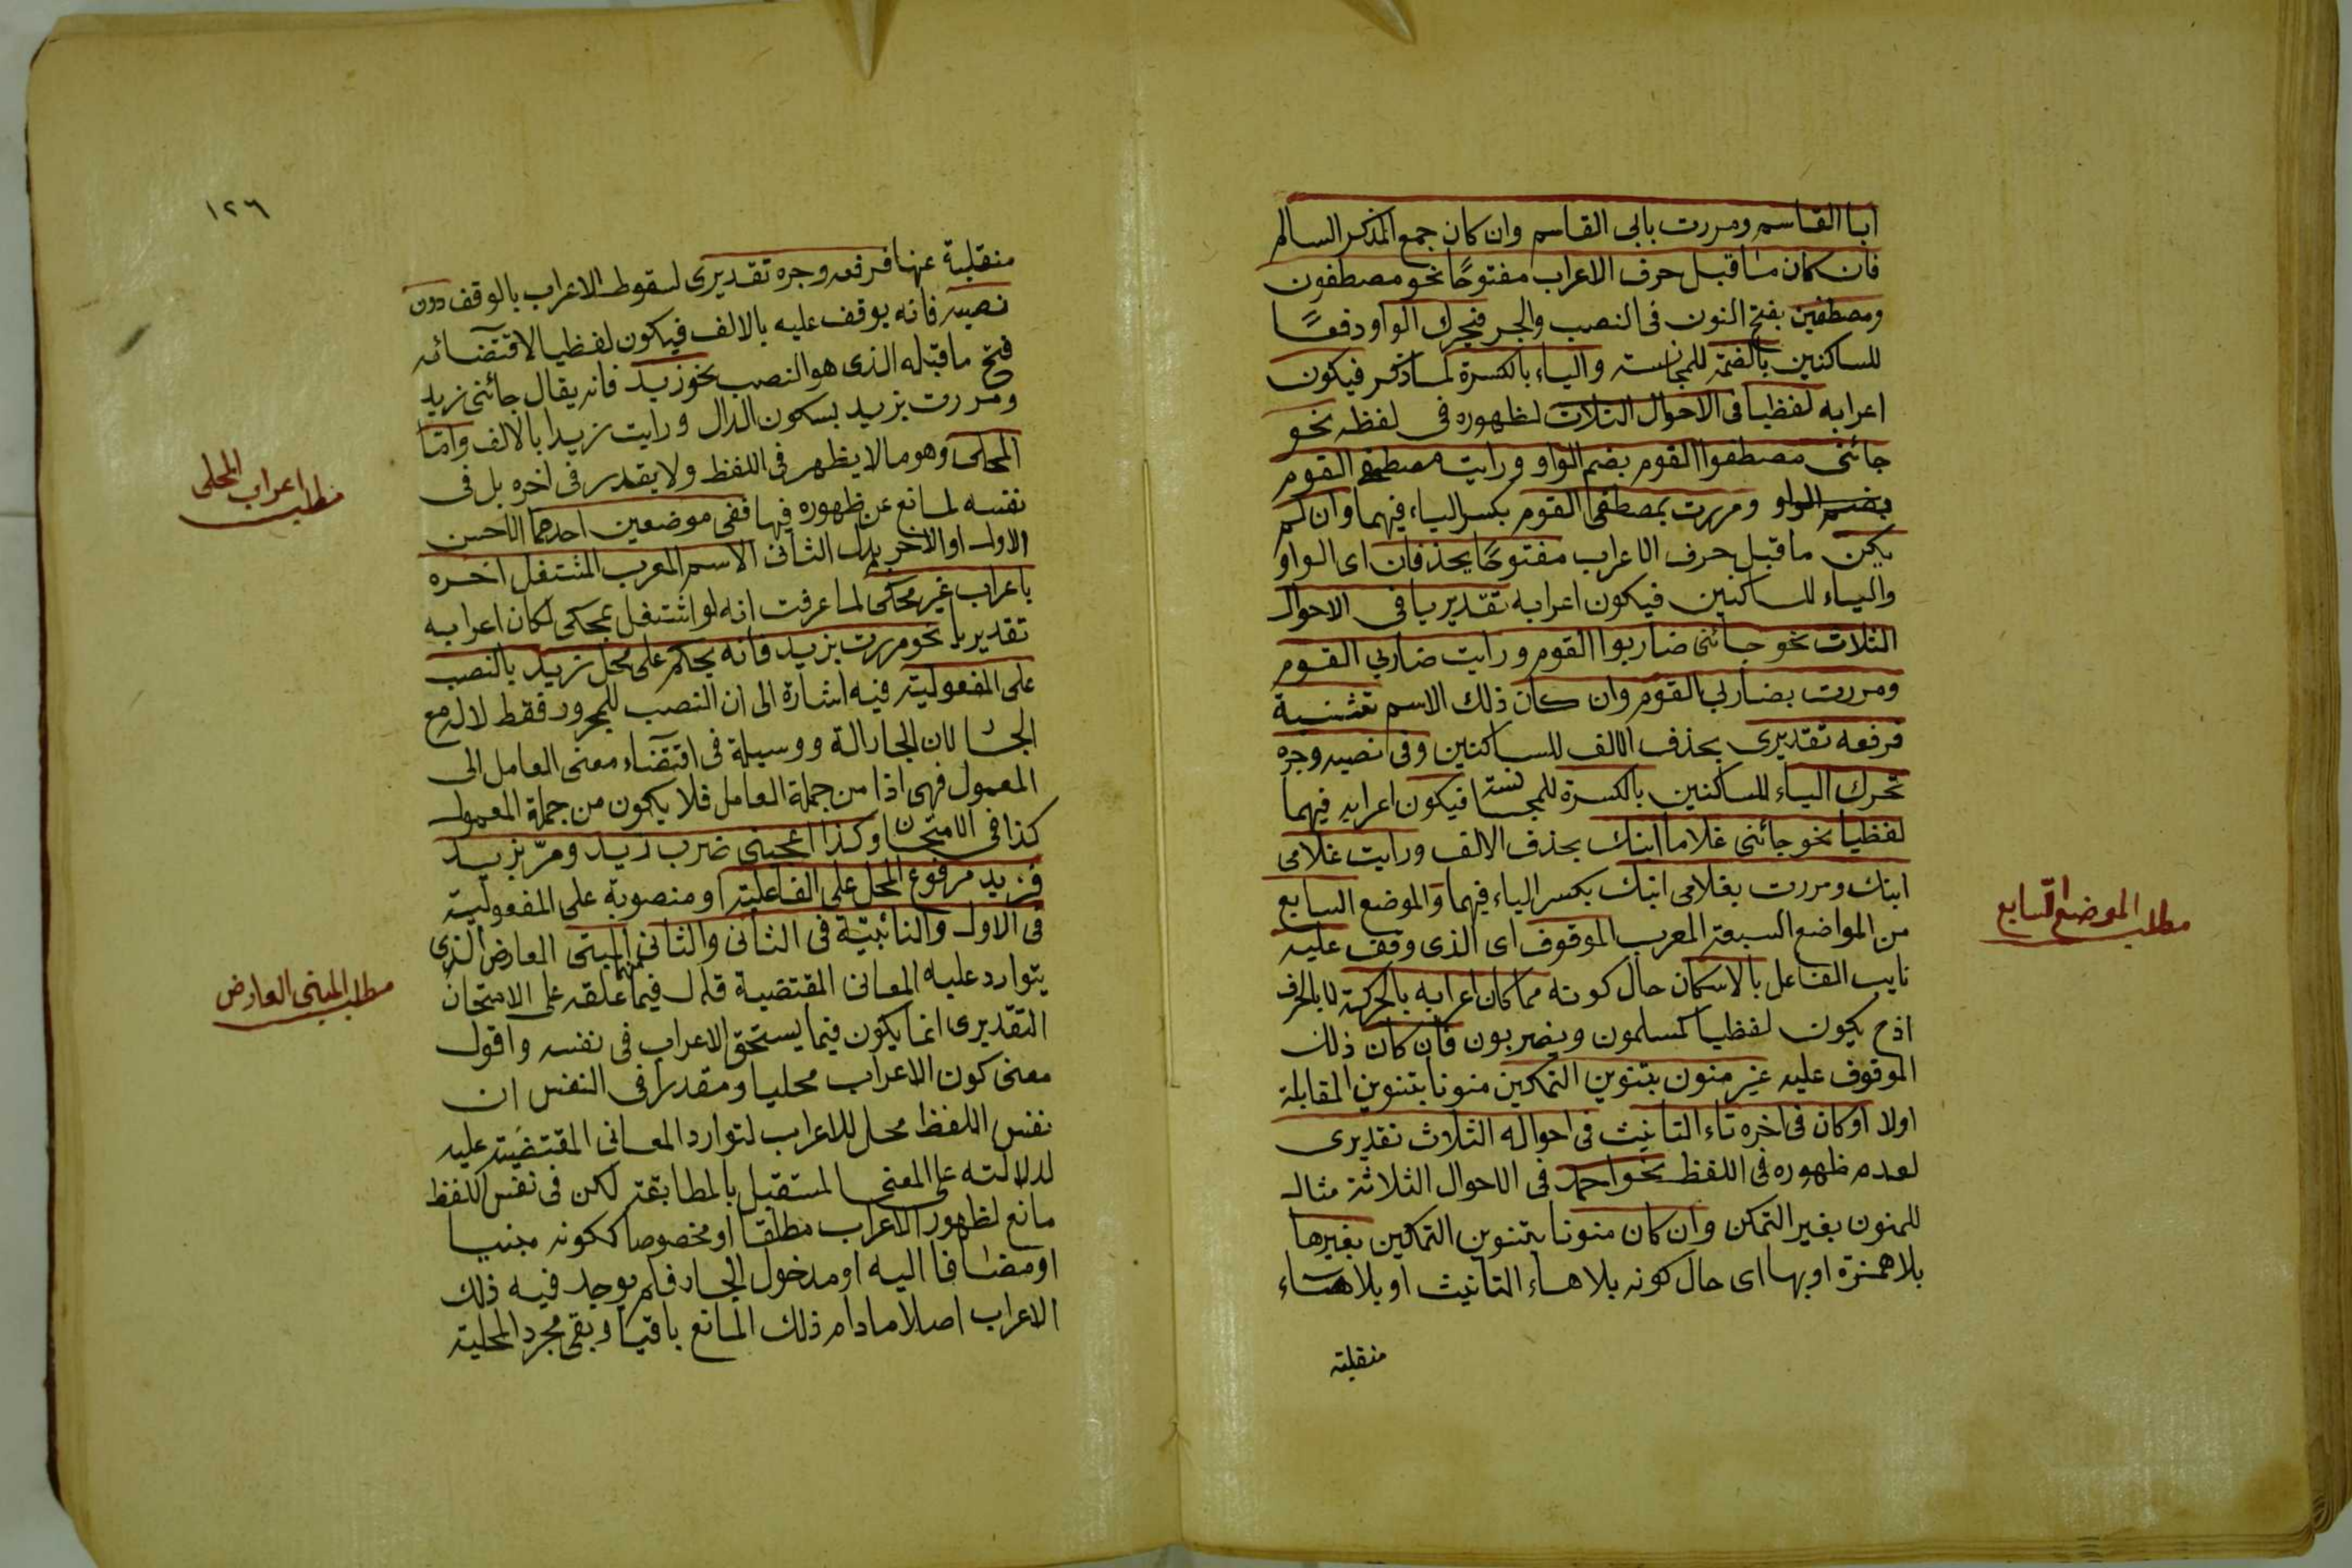 ابا القاسم ومررت بابى القاسم وان كان جمع المذكر السالم
فان كان ما قبل حرف الاعراب مفتوحًا نحو مصطفون
ومصطفين بفتح النون فى النصب والجر فيحرك الواو دفعًا
للساكنين بالضمة للمجانسة والياء بالكسرة لما ذكر فيكون
اعرابه لفظيا فى الاحوال الثلاث لظهوره فى لفظه نحو
جائنى مصطفوا القوم بضم الواو ورايت مصطفى القوم
بضم الواو ومررت بمصطفى القوم بكسر الياء فيهما وان لم
يكن ما قبل حرف الاعراب مفتوحًا يحذفان اى الواو
والياء للساكنين فيكون اعرابه تقديريا فى الاحوال
الثلاث نحو جائنى ضاربوا القوم ورايت ضاربي القوم
ومررت بضاربي القوم وان كان ذلك الاسم تثنية
فرفعه تقديرى بحذف الالف للساكنين وفى نصبه وجره
تحرك الياء للساكنين بالكسرة للمجانسة فيكون اعرابه فيهما
لفظيا نحو جائنى غلاما ابنك بحذف الالف ورايت غلامى
ابنك ومررت بغلامى ابنك بكسر الياء فيهما والموضع السابع
من المواضع السبعة المعرب الموقوف اى الذى وقف عليه
نايب الفاعل بالاسكان حال كونه مما كان اعرابه بالحركة لا بالحرف
اذح يكون لفظيا كمسلمون ويضربون فان كان ذلك
الموقوف عليه غير منون بتنوين التمكين منونا بتنوين المقابلة
اولا اوكان فى اخره تاء التانيث فى احواله الثلاث تقديرى
لعدم ظهوره فى اللفظ نحو احمد فى الاحوال الثلاثة مثال
للمنون بغير التمكن وان كان منونا بتنوين التمكين بغيرها
بلا همزة او بها اى حال كونه بلا هاء التانيث او بلا هاء
منقلبة
مطلب الموضع السابع
١٢٦
منقلبة عنها فرفعه وجره تقديرى لسقوط الاعراب بالوقف دون
نصبه فانه يوقف عليه بالالف فيكون لفظيا لاقتضائه
فتح ما قبله الذى هو النصب نحو زيد فانه يقال جائنى زيد
ومررت بزيد بسكون الدال ورايت زيدا بالالف واما
المحلى وهو ما لا يظهر فى اللفظ ولا يقدر فى اخره بل فى
نفسه لمانع عن ظهوره فيها ففى موضعين احدهما الاحسن
الاول او الاخر بدل الثانى الاسم المعرب المشتغل اخره
باعراب غير محكى لما عرفت انه لو اشتغل بمحكى لكان اعرابه
تقديريا نحو مررت بزيد فانه يحكم على محل زيد بالنصب
على المفعولية فيه اشارة الى ان النصب للمجرور فقط لا له مع
الجار لان الجار الة ووسيلة فى اقتضاء معنى العامل الى
المعمول فهى اذا من جملة العامل فلا يكون من جملة المعمول
كذا فى الامتحان وكذا اعجبنى ضرب زيد ومر بزيد
فزيد مرفوع المحل على الفاعلية او منصوبة على المفعولية
فى الاول والنائبية فى الثانى والثانى منهما المبنى العارض الذى
يتوارد عليه المعانى المقتضية قال فيما علقه على الامتحان
التقديرى انما يكون فيما يستحق الاعراب فى نفسه واقول
معنى كون الاعراب محليا ومقدرا فى النفس ان
نفس اللفظ محل للاعراب لتوارد المعانى المقتضية عليه
لدلالته على المعنى المستقبل بالمطابقة لكن فى نفس اللفظ
مانع لظهور الاعراب مطلقا او مخصوصا ككونه مبنيا
او مضافا اليه او مدخول الجار فلم يوجد فيه ذلك
الاعراب اصلا مادام ذلك المانع باقيا وبقى مجرد المحلية
مطلب اعراب المحلى
مطلب المبنى العارض